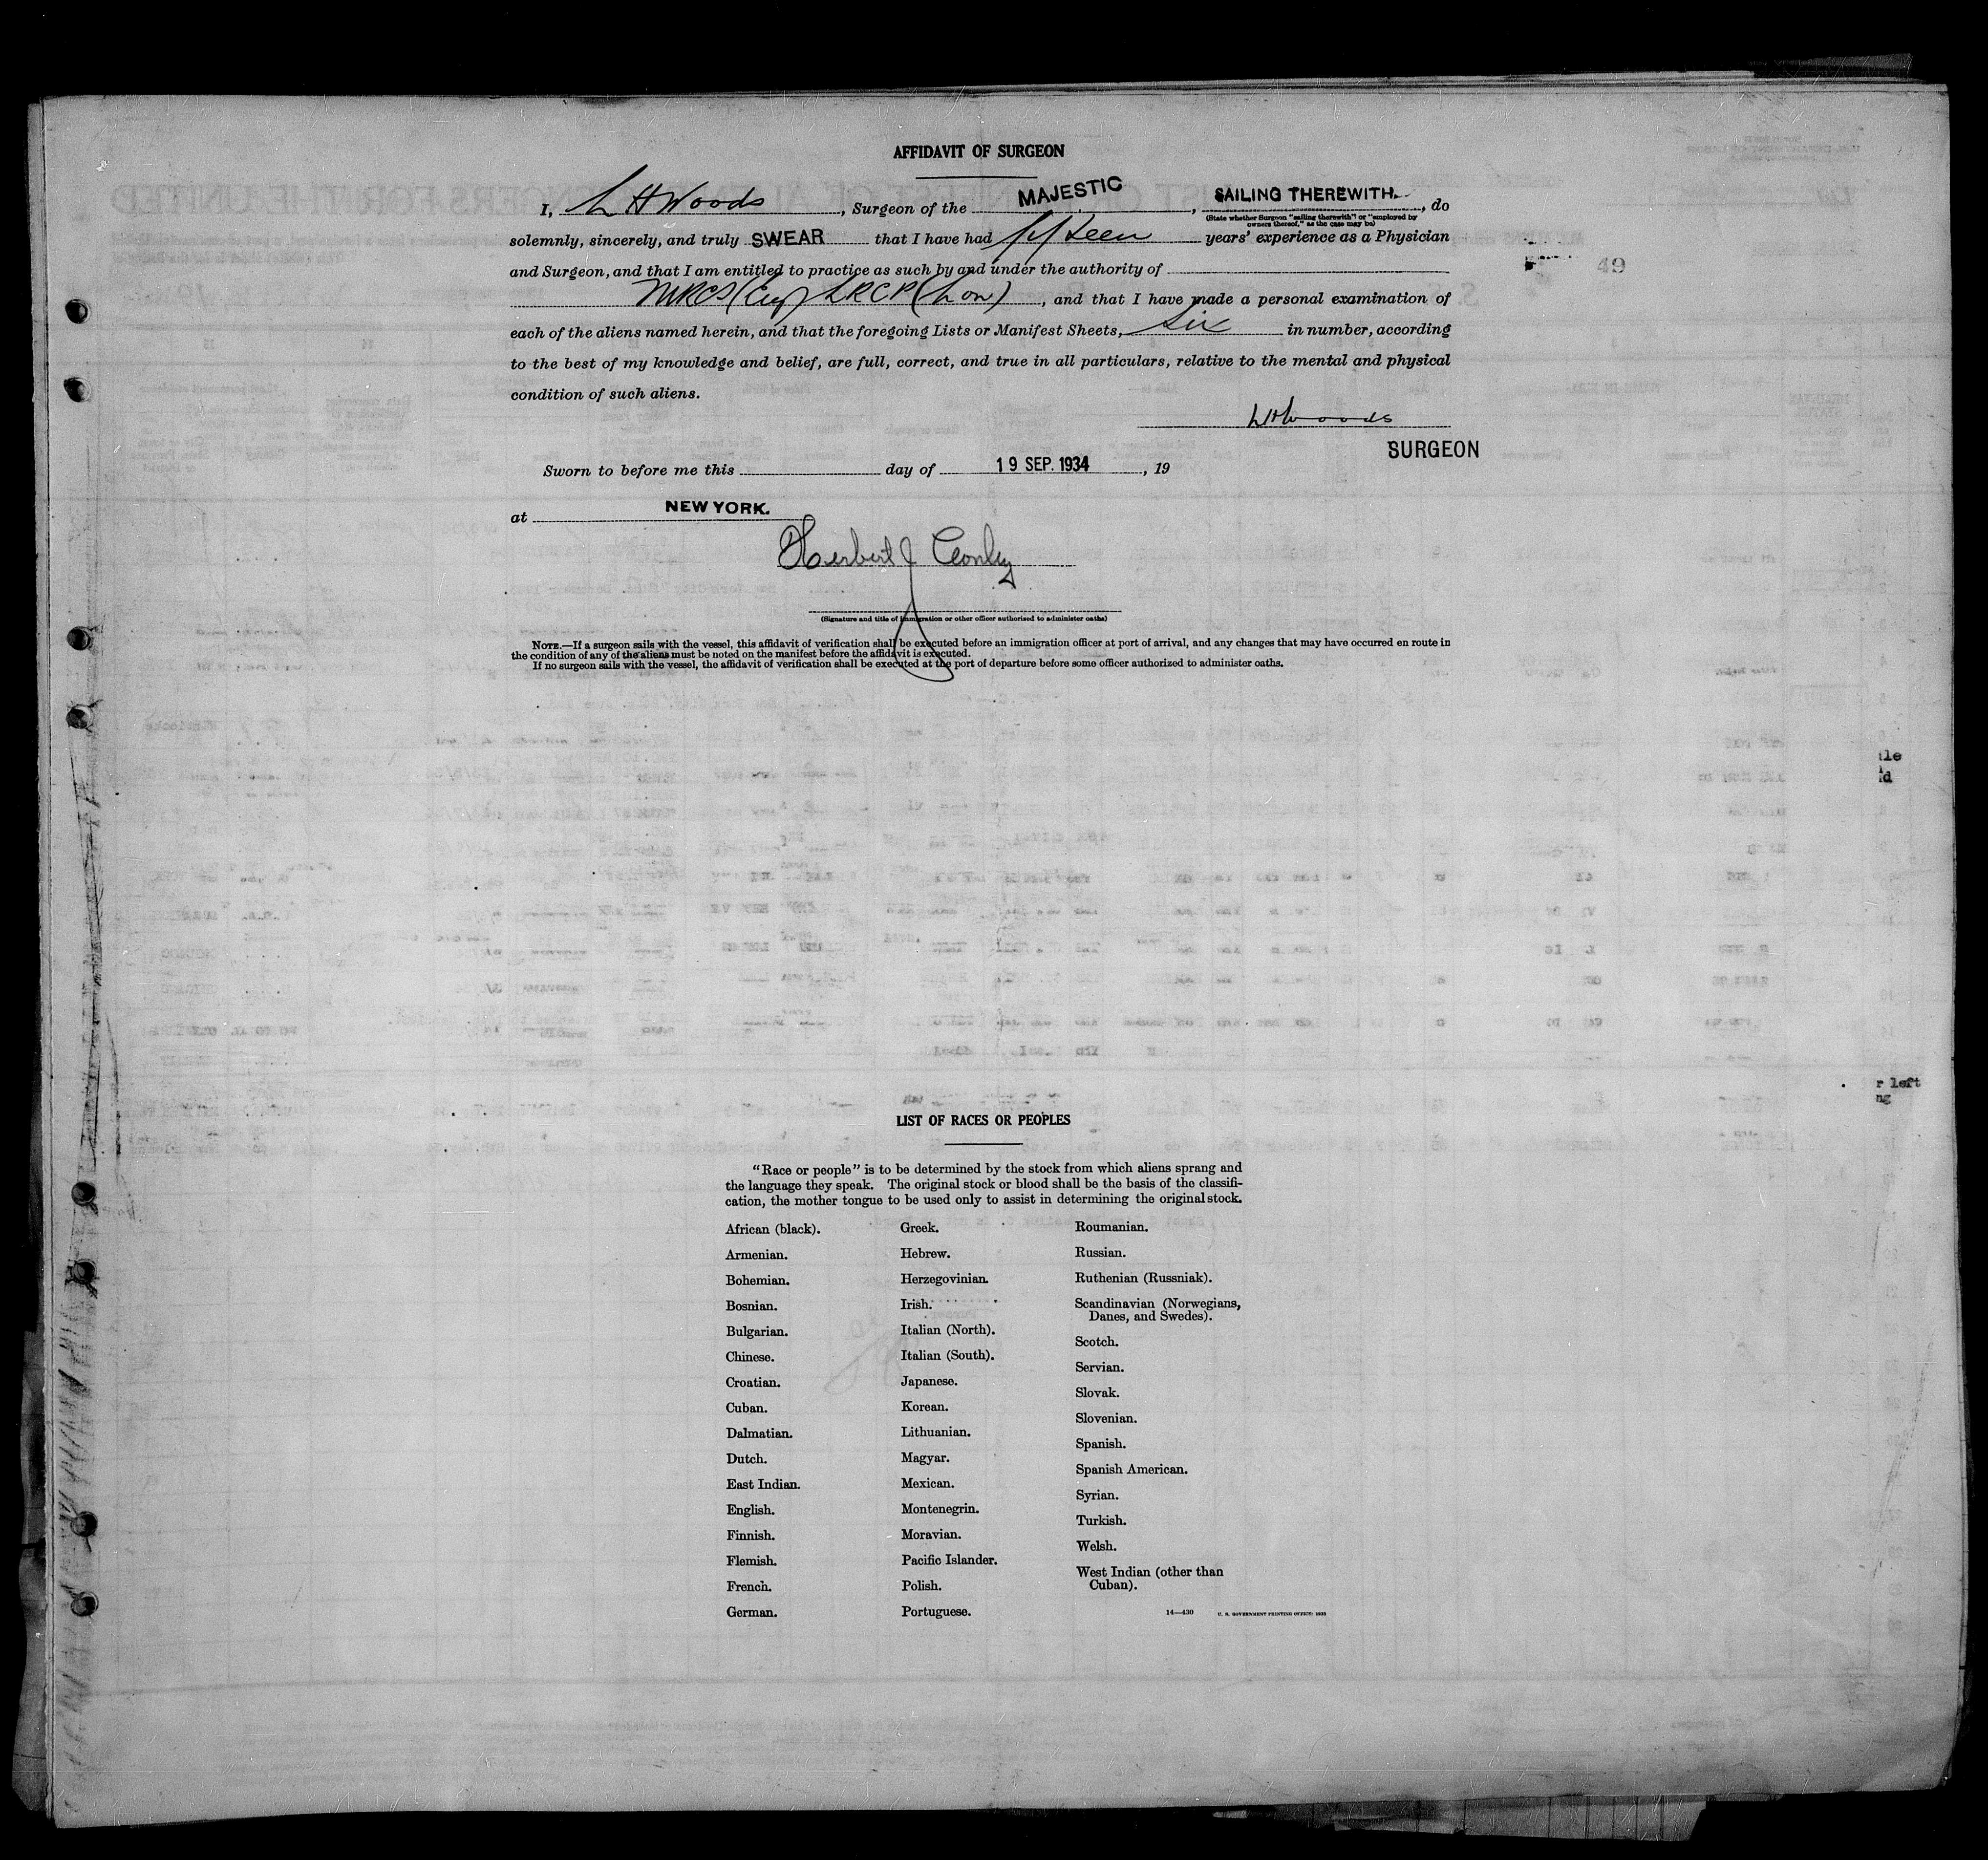 AFFIDAVIT OF SURGEON
I, L H Woods, Surgeon of the MAJESTIC, SAILING THEREWITH., do
(State whether Surgeon "sailing therewith" or "employed by
owners thereof," as the case may be)
solemnly, sincerely, and truly SWEAR that I have had fifteen years' experience as a Physician
and Surgeon, and that I am entitled to practice as such by and under the authority of
49
MRCS (Eng) LRCP (Lon), and that I have made a personal examination of
each of the aliens named herein, and that the foregoing Lists or Manifest Sheets, Six in number, according
to the best of my knowledge and belief, are full, correct, and true in all particulars, relative to the mental and physical
condition of such aliens.
LHWoods
SURGEON
Sworn to before me this day of 19 SEP. 1934, 19
at NEW YORK.
Herbert J Conley
(Signature and title of immigration or other officer authorized to administer oaths)
NOTE.—If a surgeon sails with the vessel, this affidavit of verification shall be executed before an immigration officer at port of arrival, and any changes that may have occurred en route in
the condition of any of the aliens must be noted on the manifest before the affidavit is executed.
If no surgeon sails with the vessel, the affidavit of verification shall be executed at the port of departure before some officer authorized to administer oaths.
r left
ng
LIST OF RACES OR PEOPLES
"Race or people" is to be determined by the stock from which aliens sprang and
the language they speak. The original stock or blood shall be the basis of the classifi-
cation, the mother tongue to be used only to assist in determining the original stock.
African (black).
Armenian.
Bohemian.
Bosnian.
Bulgarian.
Chinese.
Croatian.
Cuban.
Dalmatian.
Dutch.
East Indian.
English.
Finnish.
Flemish.
French.
German.
Greek.
Hebrew.
Herzegovinian.
Irish.
Italian (North).
Italian (South).
Japanese.
Korean.
Lithuanian.
Magyar.
Mexican.
Montenegrin.
Moravian.
Pacific Islander.
Polish.
Portuguese.
Roumanian.
Russian.
Ruthenian (Russniak).
Scandinavian (Norwegians,
Danes, and Swedes).
Scotch.
Servian.
Slovak.
Slovenian.
Spanish.
Spanish American.
Syrian.
Turkish.
Welsh.
West Indian (other than
Cuban).
14—430 U. S. GOVERNMENT PRINTING OFFICE: